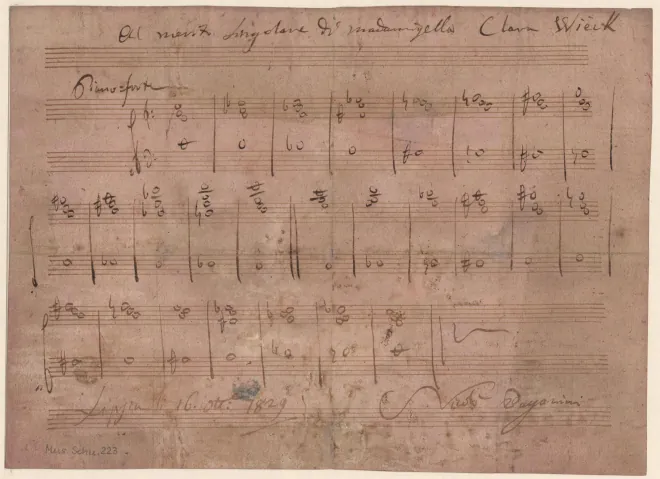 Al merito singolare di madamigella Clara Wieck
Pianoforte
Lipsia li 16 8bre: 1829 Nicò Paganini
Mus. Schu. 223